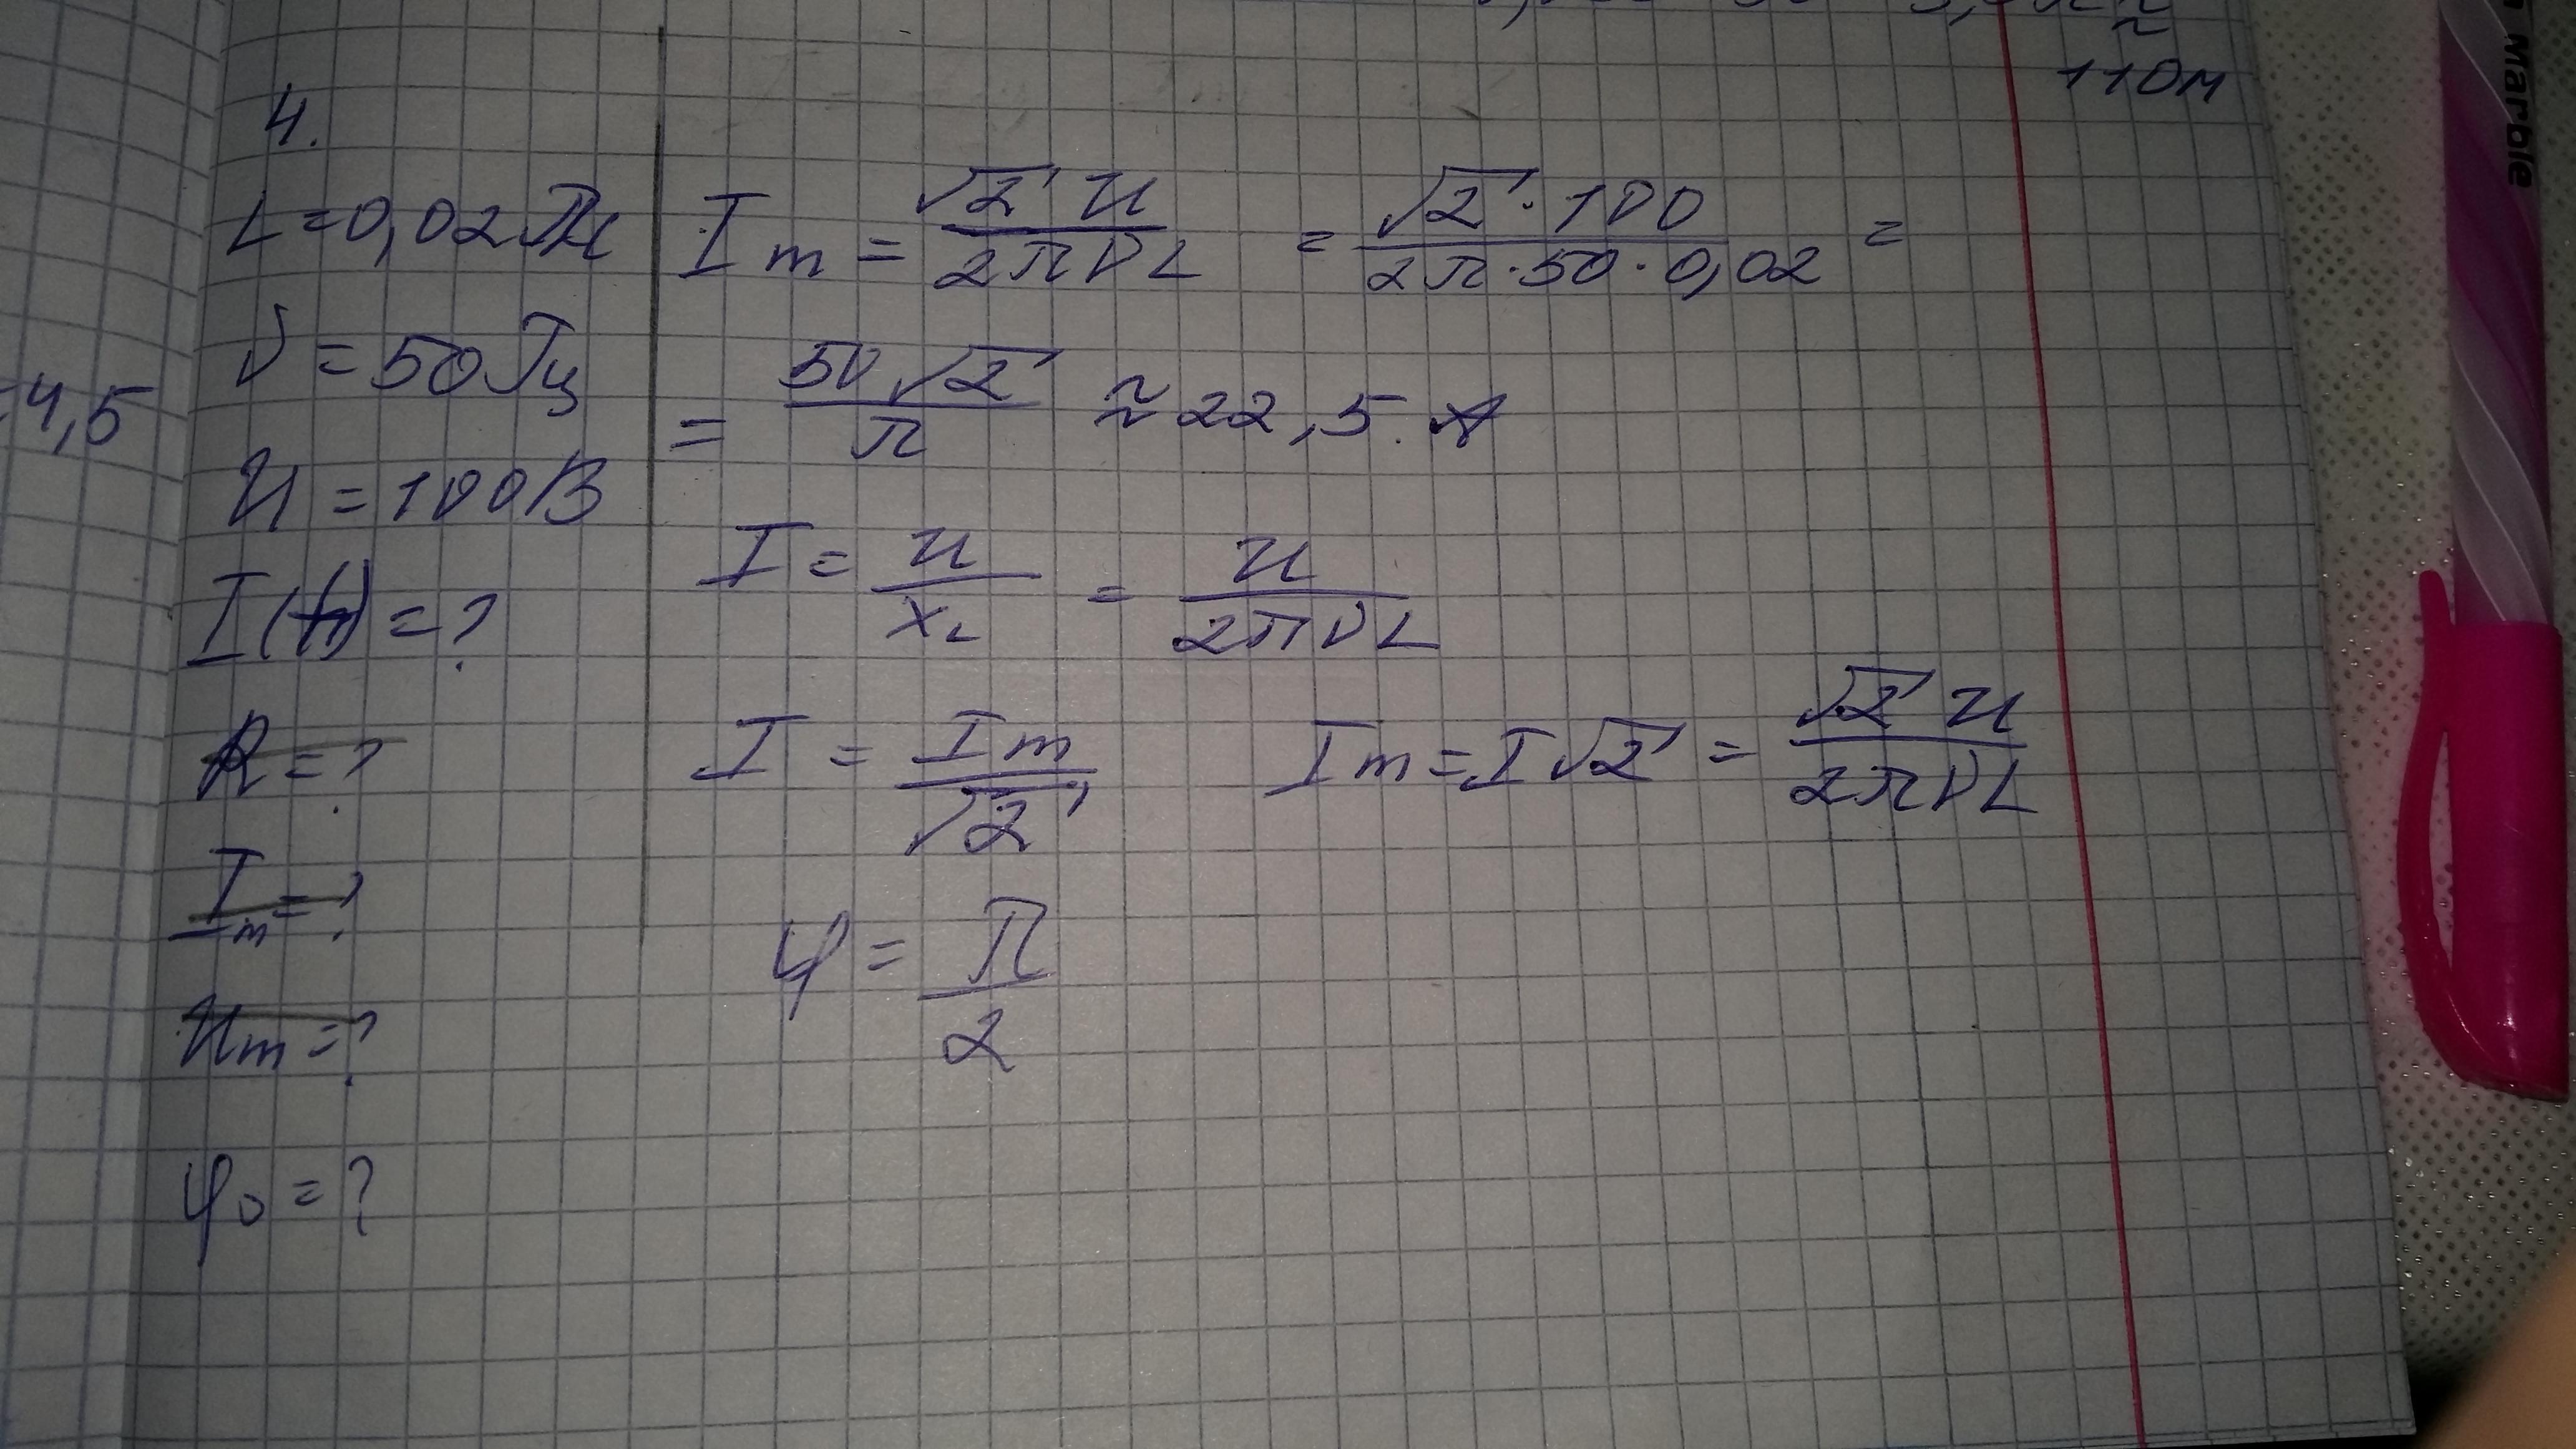 11 Ом
4.
L = 0,02 Гн
ν = 50 Гц
U = 100 В
I(t) = ?
R = ?
Im = ?
Um = ?
φ0 = ?
Im = √2 U / 2πνL = √2 · 100 / 2π · 50 · 0,02 =
= 50√2 / π ≈ 22,5 A
I = U / XL = U / 2πνL
I = Im / √2 Im = I√2 = √2 U / 2πνL
φ = π / 2
4,5
Marble